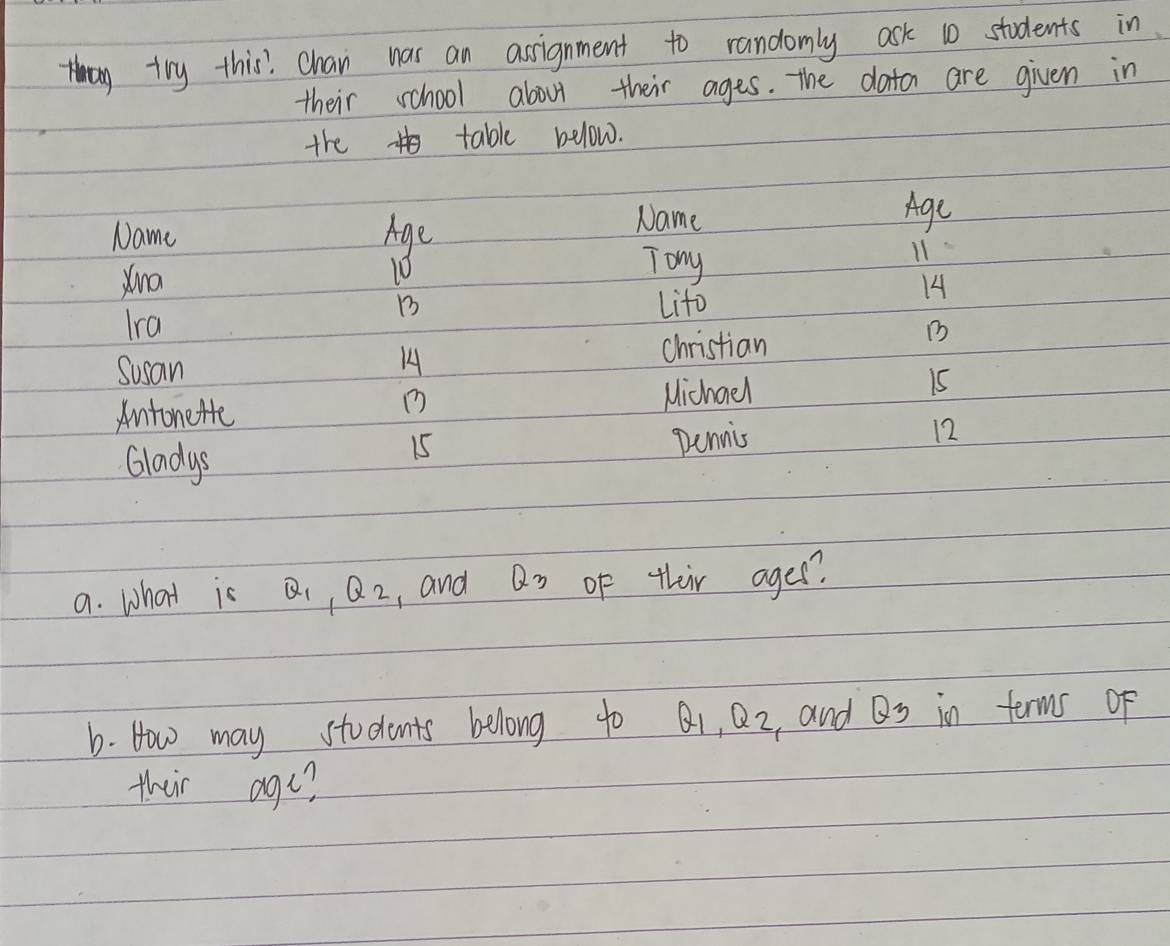 try this! Chan has an assignment to randomly ask 10 students in
their school about their ages. The data are given in
the table below.
Name Age Name Age
Xna 10 Tony 11
Ira 13 Lito 14
Susan 14 Christian 13
Antonette 13 Michael 15
Gladys 15 Dennis 12
a. What is Q1, Q2, and Q3 of their ages?
b. How may students belong to Q1, Q2, and Q3 in terms of
their age?